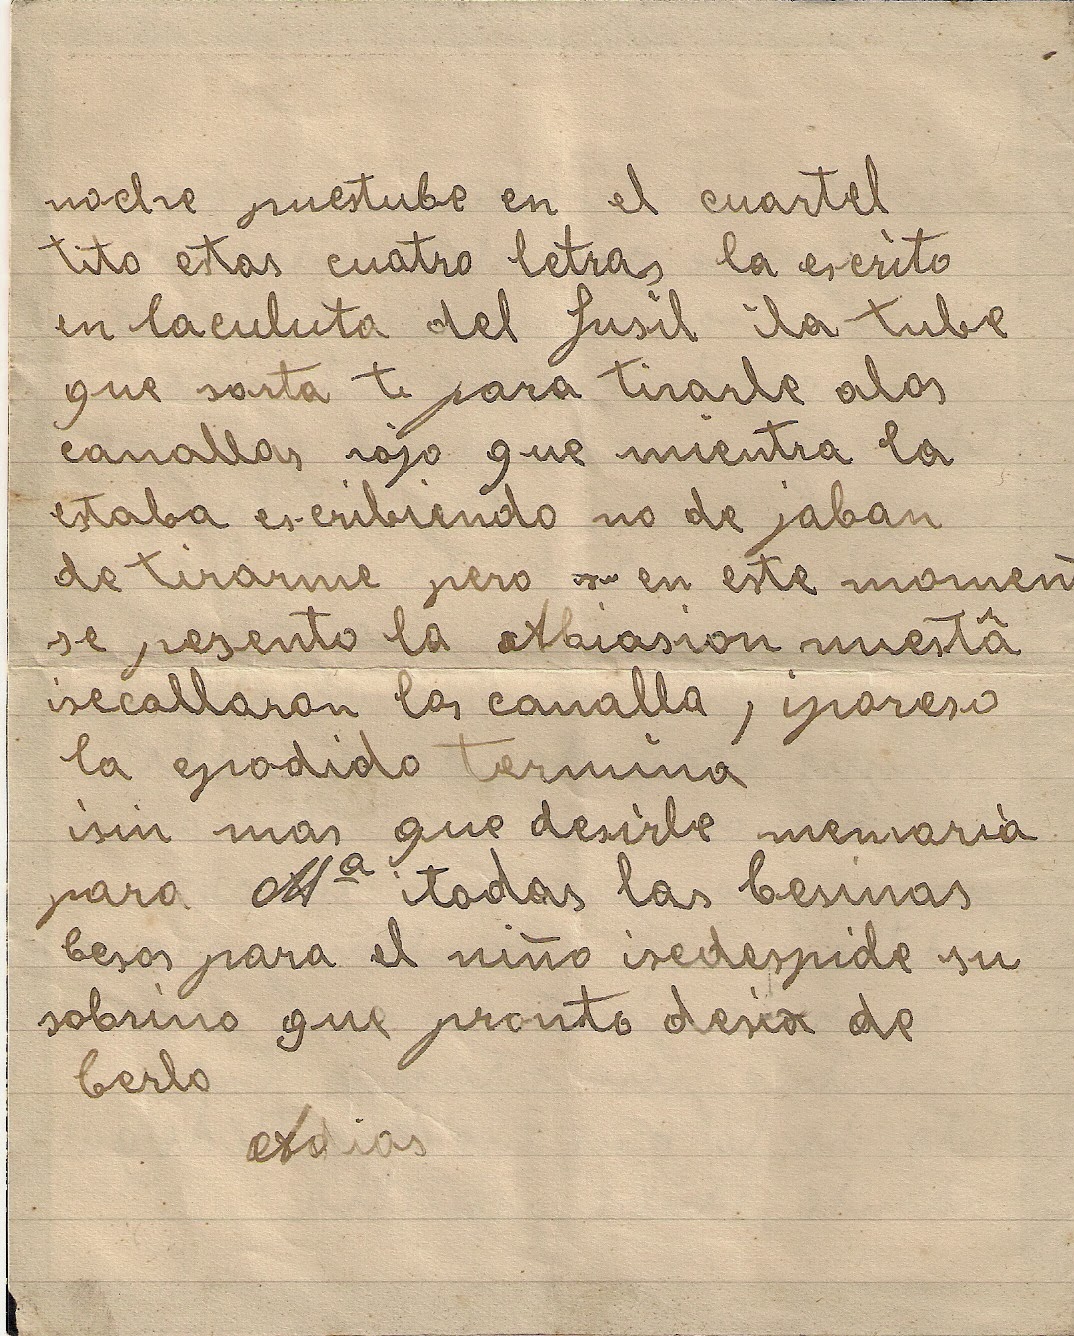 noche puestube en el cuartel
tito estas cuatro letras la escrito
en laculuta del fusil ila tube
que sorta te para tirarle alos
canallas rojo que mientra la
estaba escribiendo no de jaban
de tirarme pero en este momen
se pesento la Abiasion nuestra
isecallaron los canalla, iporeso
la epodido termina
isin mas que desirle memoria
para Mª itodas las besinas
besos para el niño isedespide su
sobrino que pronto desia de
berlo
Adios